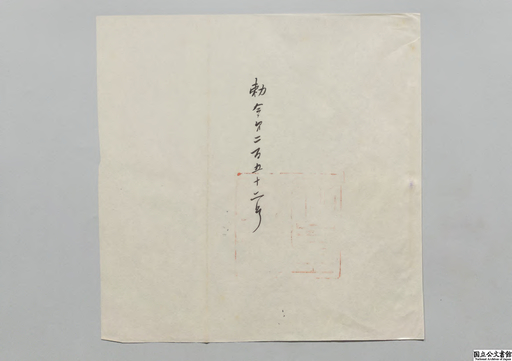 勅令第二百五十二号
国立公文書館
National Archives of Japan